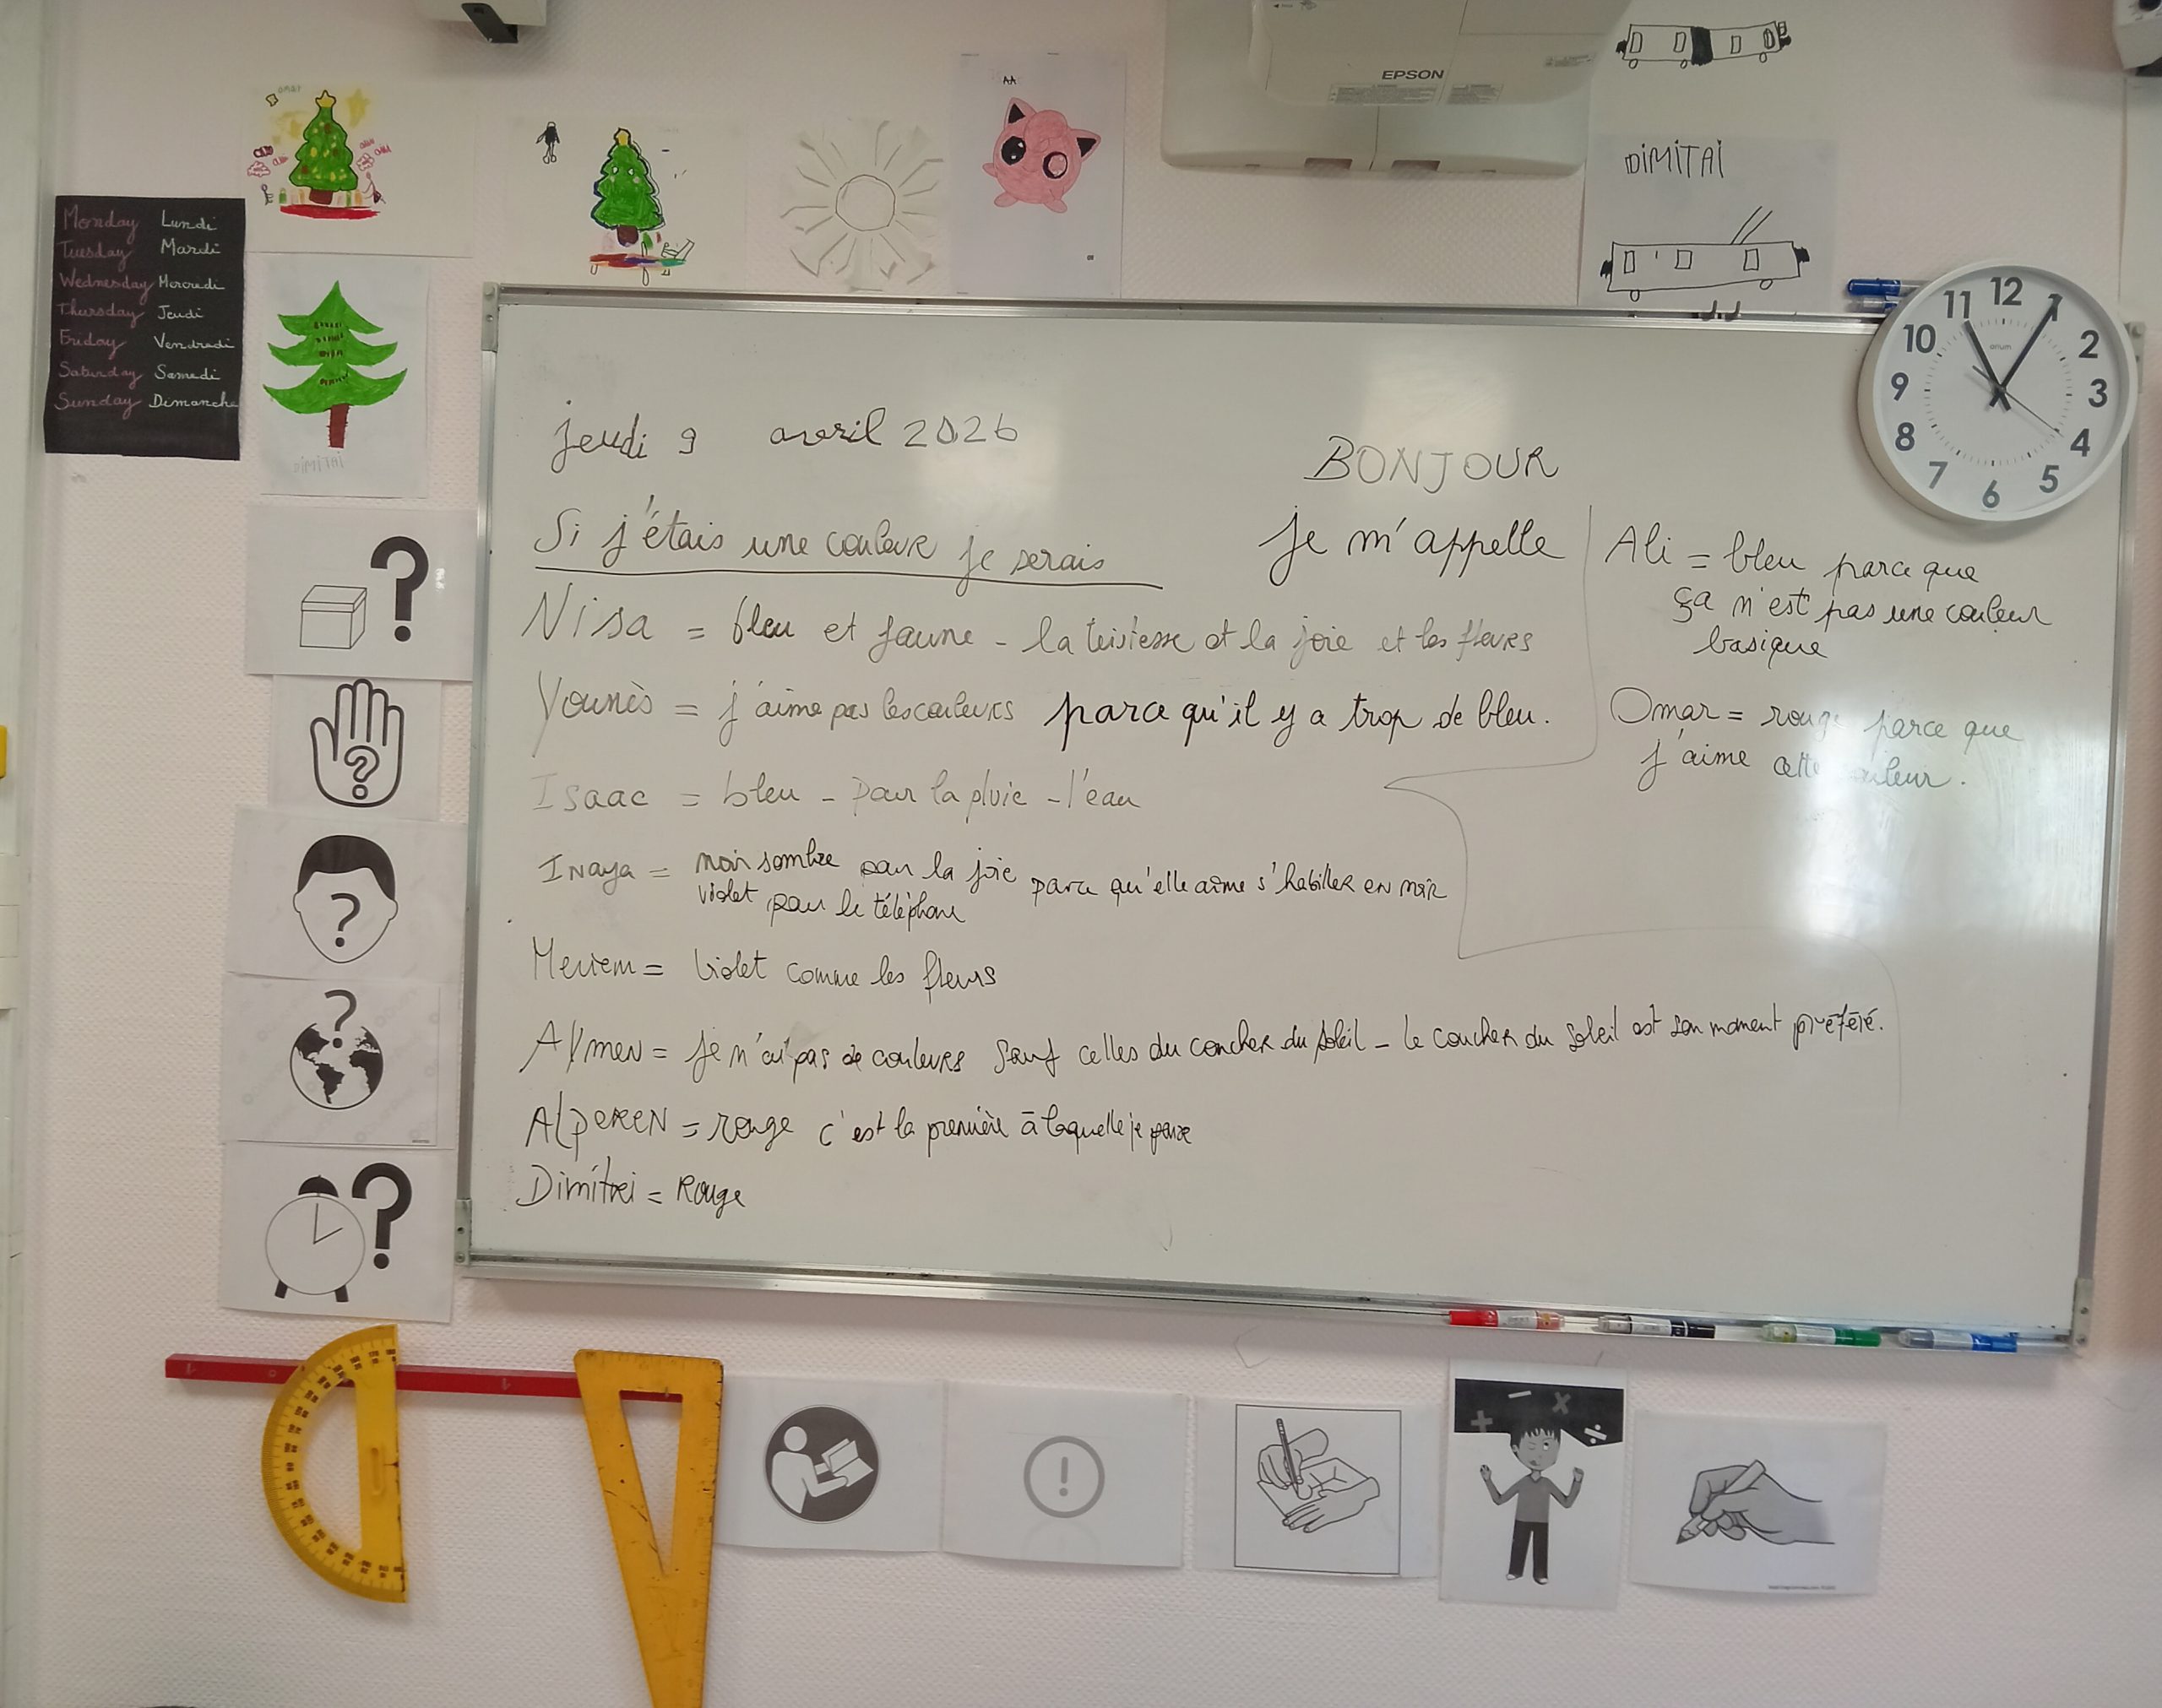 EPSON
AA
DiMiTAi
Monday Lundi
Tuesday Mardi
Wednesday Mercredi
Thursday Jeudi
Friday Vendredi
Saturday Samedi
Sunday Dimanche
11 12 1
10 2
9 3
8 4
7 6 5
jeudi 9 avril 2026
BONJOUR
Si j'étais une couleur je serais
je m'appelle
Nisa = bleu et jaune - la tristesse et la joie et les fleurs
Younès = j'aime pas les couleurs parce qu'il y a trop de bleu.
Isaac = bleu - pour la pluie - l'eau
Inaya = noir sombre pour la joie parce qu'elle aime s'habiller en noir
violet pour le téléphone
Meriem = violet comme les fleurs
Aymen = je n'ai pas de couleurs sauf celles du coucher du soleil - le coucher du soleil est son moment préféré.
AlpEREN = rouge c'est la première à laquelle je pense
Dimitri = Rouge
Ali = bleu parce que
ça n'est pas une couleur
basique
Omar = rouge parce que
j'aime cette couleur.